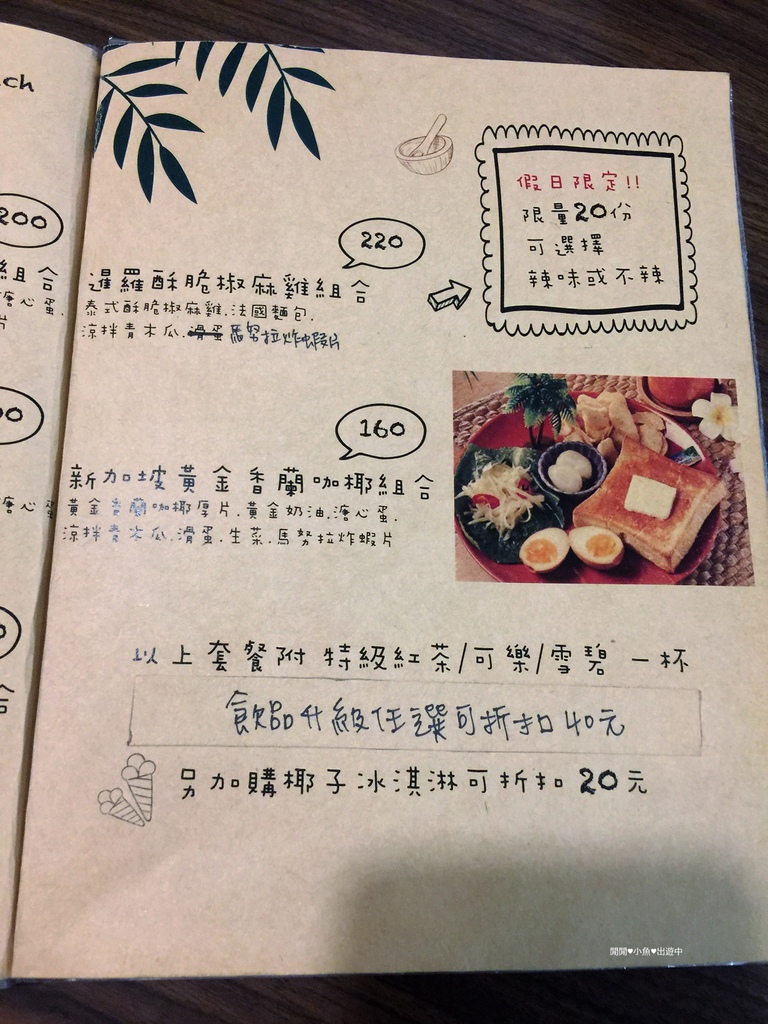 ch
200
組合
溏心蛋.
片
溏心蛋
220
暹羅酥脆椒麻雞組合
泰式酥脆椒麻雞.法國麵包.
涼拌青木瓜.滑蛋 馬努拉炸蝦片
假日限定!!
限量20份
可選擇
辣味或不辣
160
新加坡黃金香蘭咖椰組合
黃金香蘭咖椰厚片.黃金奶油.溏心蛋.
涼拌青木瓜.滑蛋.生菜.馬努拉炸蝦片
以上套餐附 特級紅茶/可樂/雪碧 一杯
飲品升級任選可折扣40元
另加購椰子冰淇淋可折扣20元
閒閒♥小魚♥出遊中